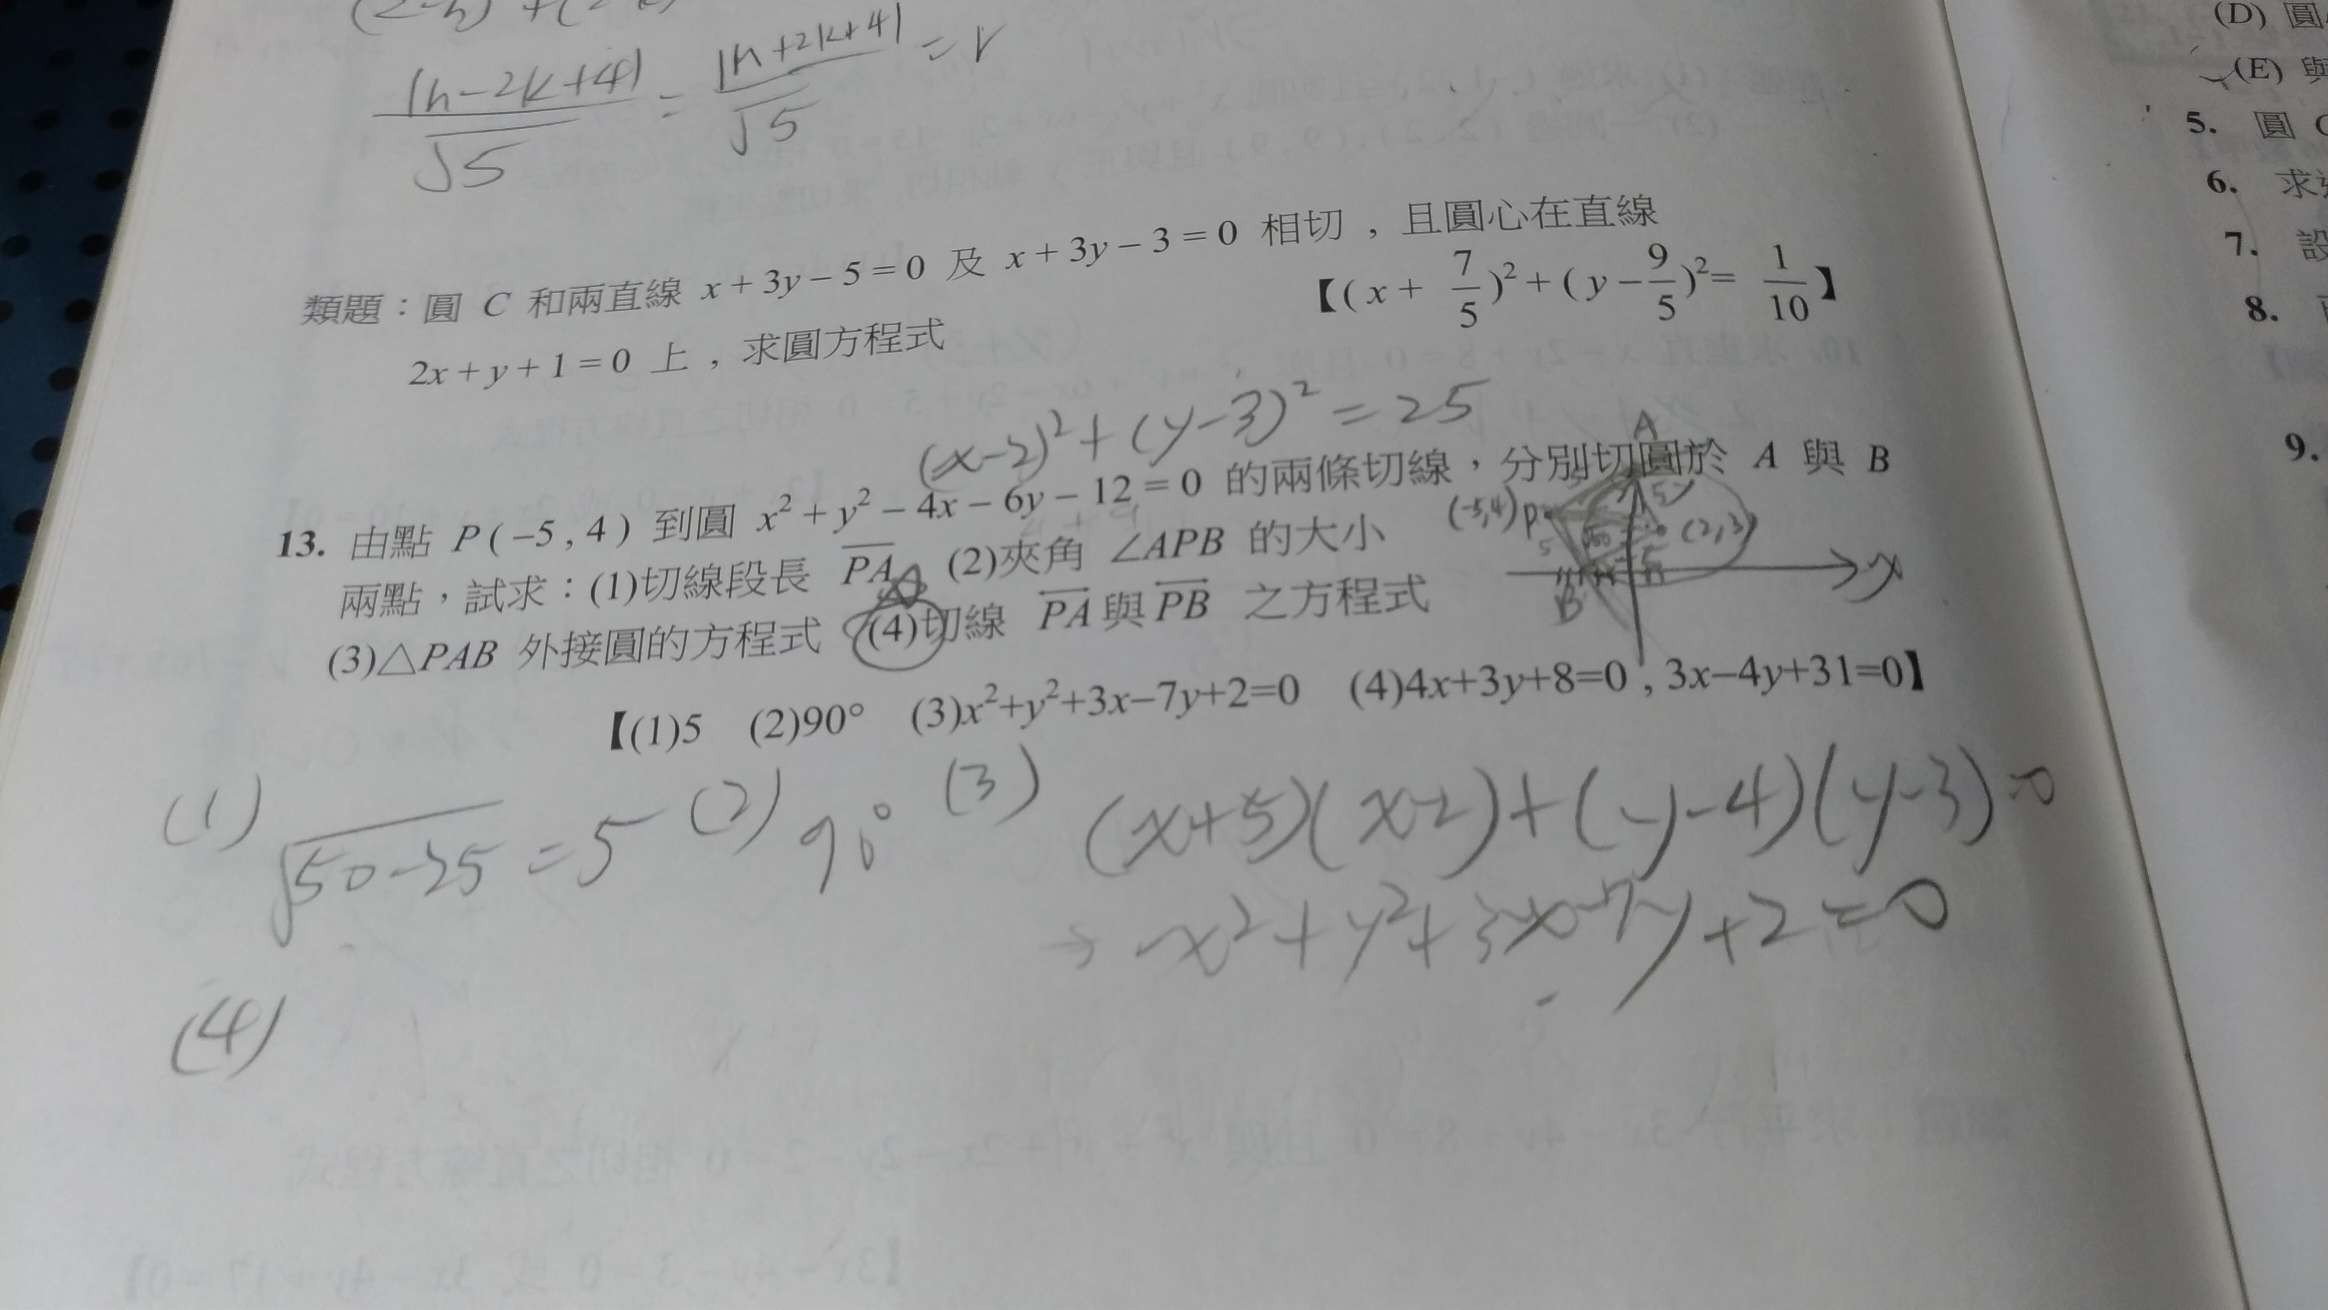 |h-2k+4| / √5 = |h+2k+4| / √5 = r
類題：圓 C 和兩直線 x + 3y – 5 = 0 及 x + 3y – 3 = 0 相切，且圓心在直線
2x + y + 1 = 0 上，求圓方程式
【(x + 7/5)² + (y – 9/5)² = 1/10】
(x-2)² + (y-3)² = 25
13. 由點 P(–5, 4) 到圓 x² + y² – 4x – 6y – 12 = 0 的兩條切線，分別切圓於 A 與 B
兩點，試求：(1)切線段長 PA (2)夾角 ∠APB 的大小
(3)△PAB 外接圓的方程式 (4)切線 PA與PB 之方程式
A
(-5,4)P
5
(2,3)
x
B
【(1)5 (2)90° (3)x²+y²+3x–7y+2=0 (4)4x+3y+8=0, 3x–4y+31=0】
(1) √50-25 = 5 (2) 90° (3) (x+5)(x-2)+(y-4)(y-3)=0
→ x²+y²+3x-7y+2=0
(4)
(D) 圓
(E) 與
5. 圓
6. 求
7. 設
8.
9.